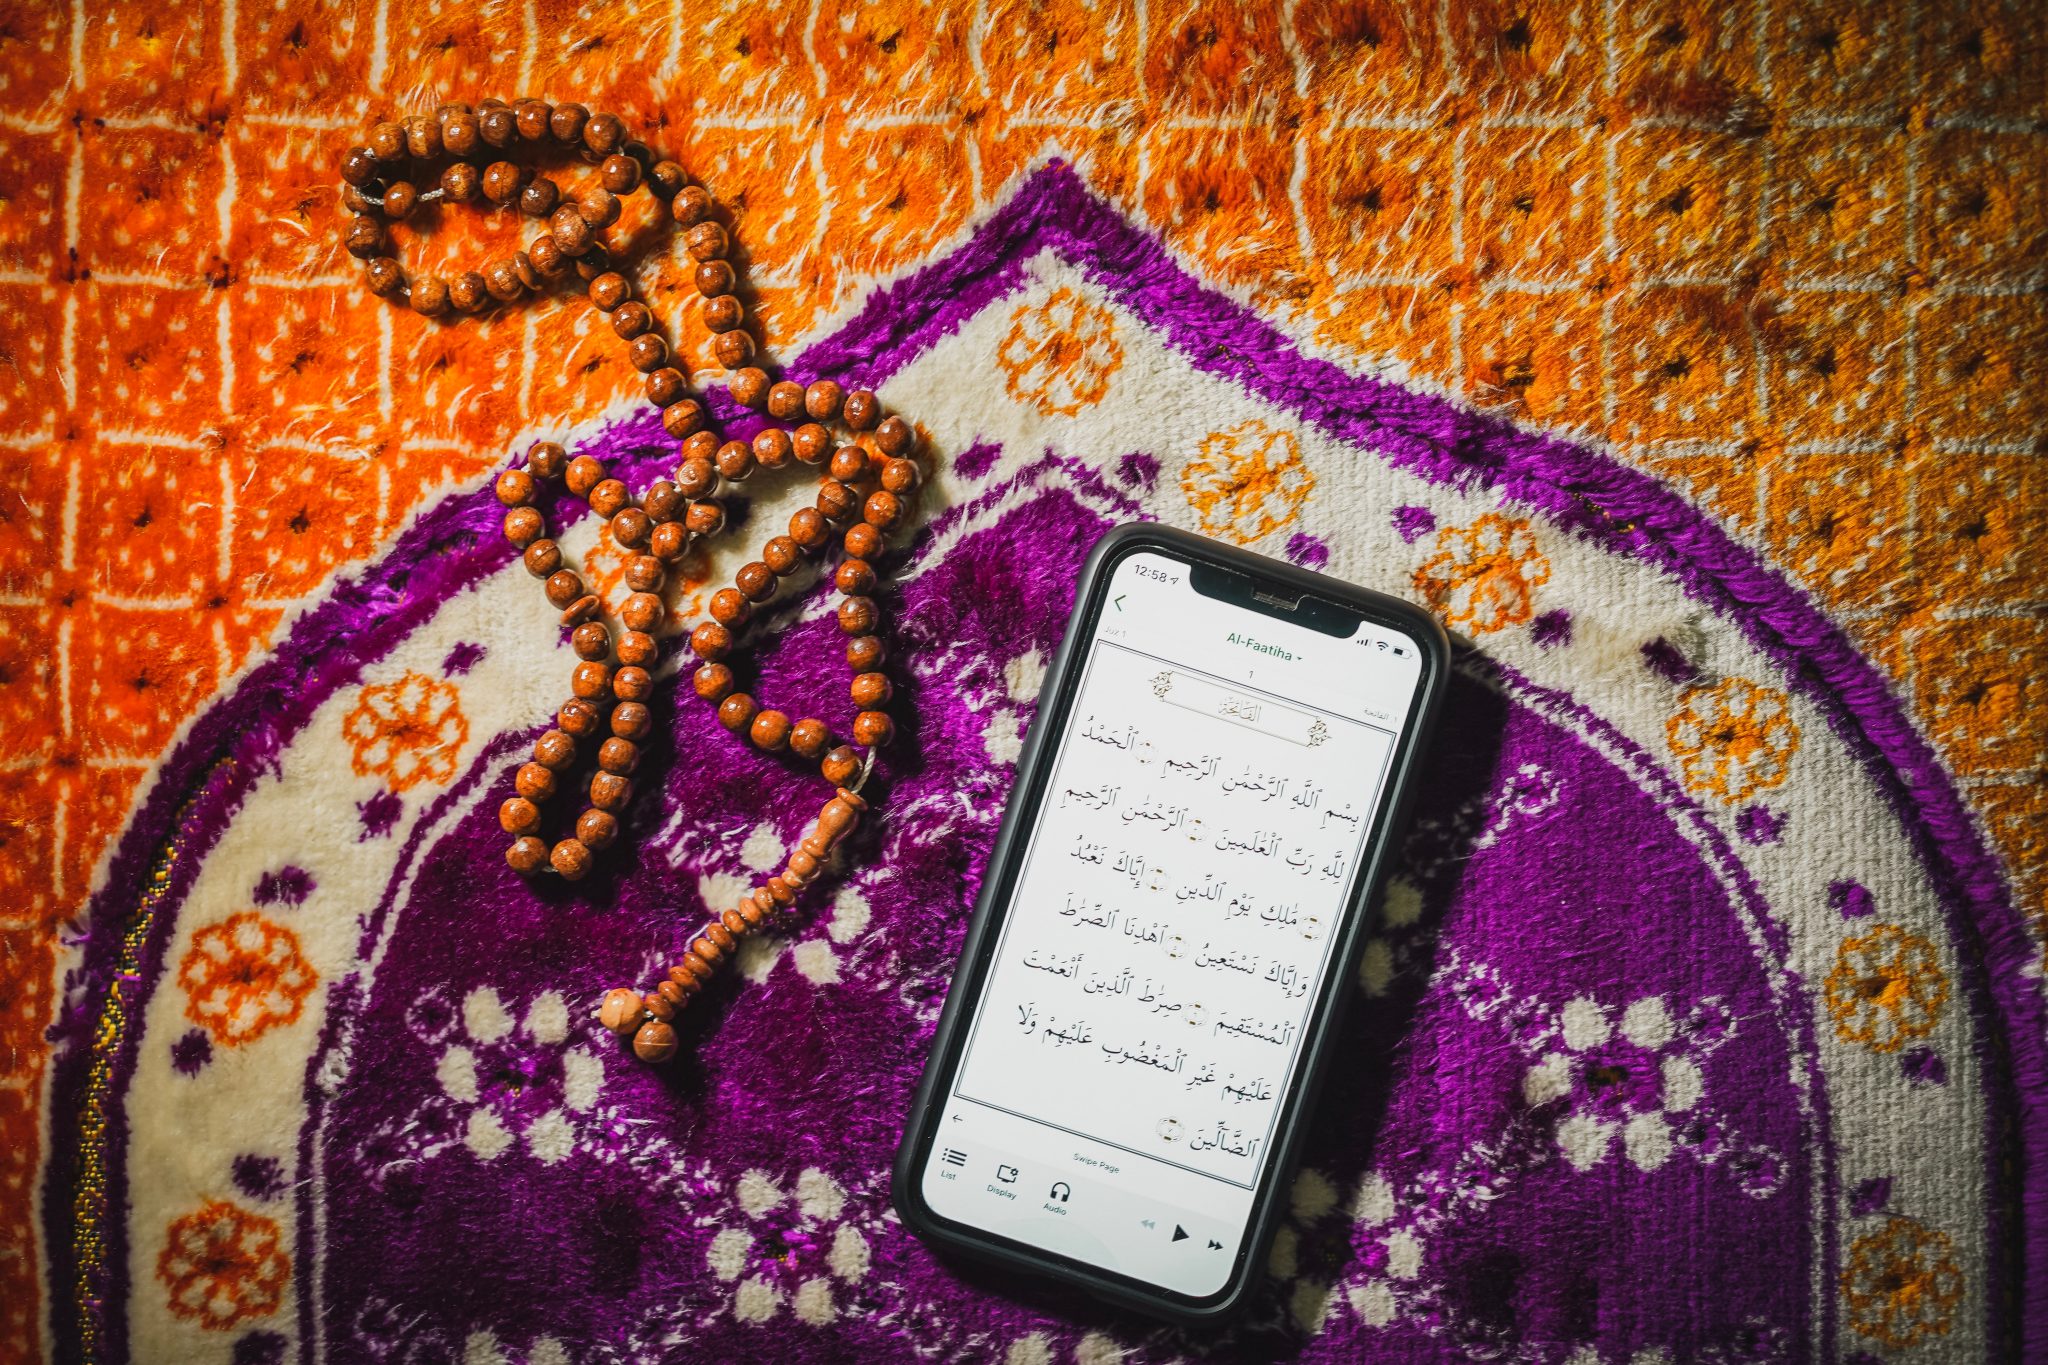 12:58
Al-Faatiha
Juz 1
1
1. الفاتحة
الفَاتِحَةِ
بِسْمِ ٱللَّهِ ٱلرَّحْمَٰنِ ٱلرَّحِيمِ ۝١ ٱلْحَمْدُ
لِلَّهِ رَبِّ ٱلْعَٰلَمِينَ ۝٢ ٱلرَّحْمَٰنِ ٱلرَّحِيمِ
۝٣ مَٰلِكِ يَوْمِ ٱلدِّينِ ۝٤ إِيَّاكَ نَعْبُدُ
وَإِيَّاكَ نَسْتَعِينُ ۝٥ ٱهْدِنَا ٱلصِّرَٰطَ
ٱلْمُسْتَقِيمَ ۝٦ صِرَٰطَ ٱلَّذِينَ أَنْعَمْتَ
عَلَيْهِمْ غَيْرِ ٱلْمَغْضُوبِ عَلَيْهِمْ وَلَا
ٱلضَّآلِّينَ ۝٧
Swipe Page
List Display Audio